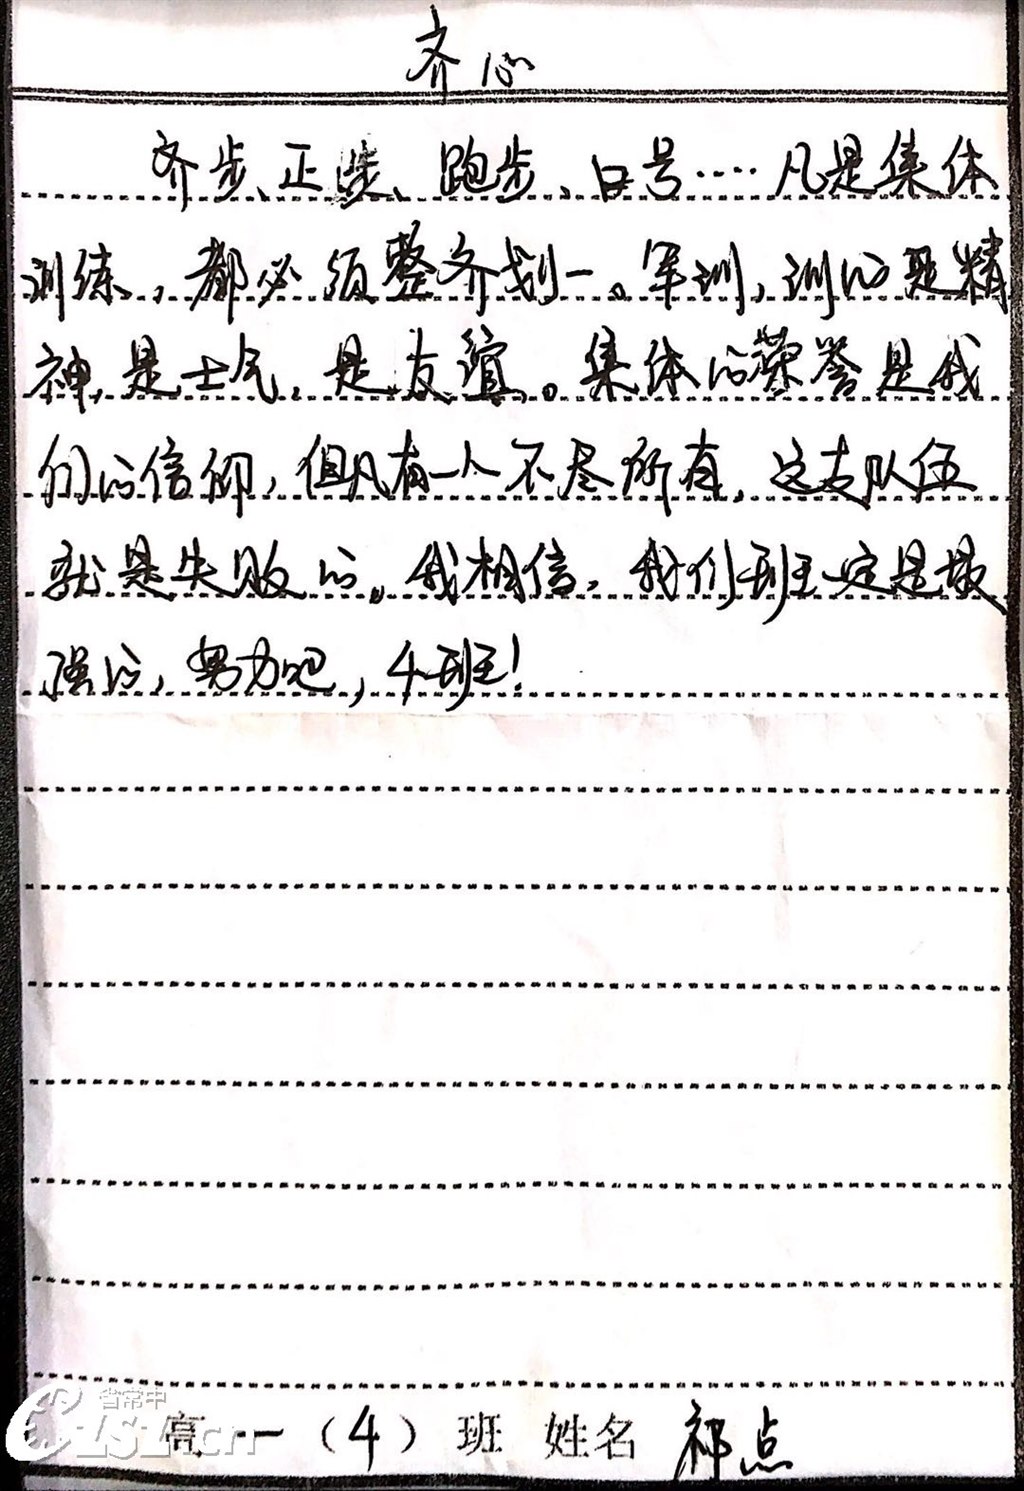 齐心
齐步、正步、跑步、口号……凡是集体
训练，都必须整齐划一。军训，训的是精
神，是士气，是友谊。集体的荣誉是我
们的信仰，但凡有一人不尽所有，这支队伍
就是失败的。我相信，我们班一定是最
强的，努力吧，4班！
省常中
高一（4）班 姓名 祁点